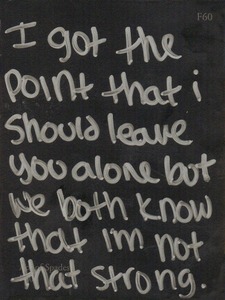 F60
I got the
point that i
should leave
you alone but
we both know
that I'm not
that strong.